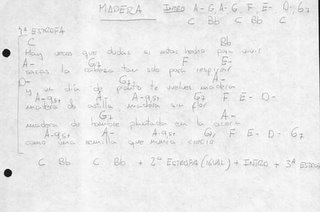 MADERA INTRO A- G A- G F E- D- G7
C Bb C Bb C
1ª ESTROFA
C Bb
Hay veces que dudas si estas hecho para vivir
A- G7 F E-
sacas la cabeza tan solo para respirar
D- G7 A-
y un dia de pronto te vuelves madera
A-9s+ A- A-9s+ G7 F E- D-
madera de astilla madera sin flor
G7 A-
madera de hombre plantada en la acera
A-9s+ A- A-9s+ G7 F E- D- G7
como una semilla que nunca
C Bb C Bb + 2ª ESTROFA (IGUAL) + INTRO + 3ª ESTROFA